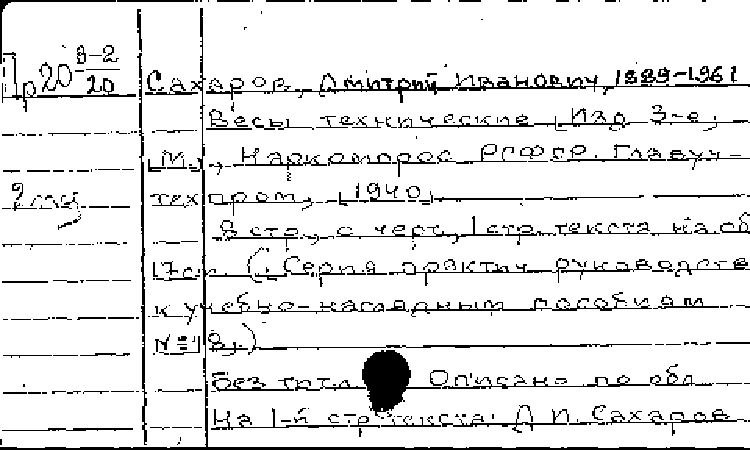 Пр20 В-2/20
Сахаров, Дмитрий Иванович, 1889-1961
Весы технические [Изд. 3-е,
[М.], Наркомпрос РСФСР. Главуч-
техпром, [1940]
8 стр., с черт., 1 стр. текста на об
17 см. (Серия практич руководств
к учебно-наглядным пособиям
№ 18.)
Без тит. л Описано по обл
На 1-й стр текста: Д И. Сахаров